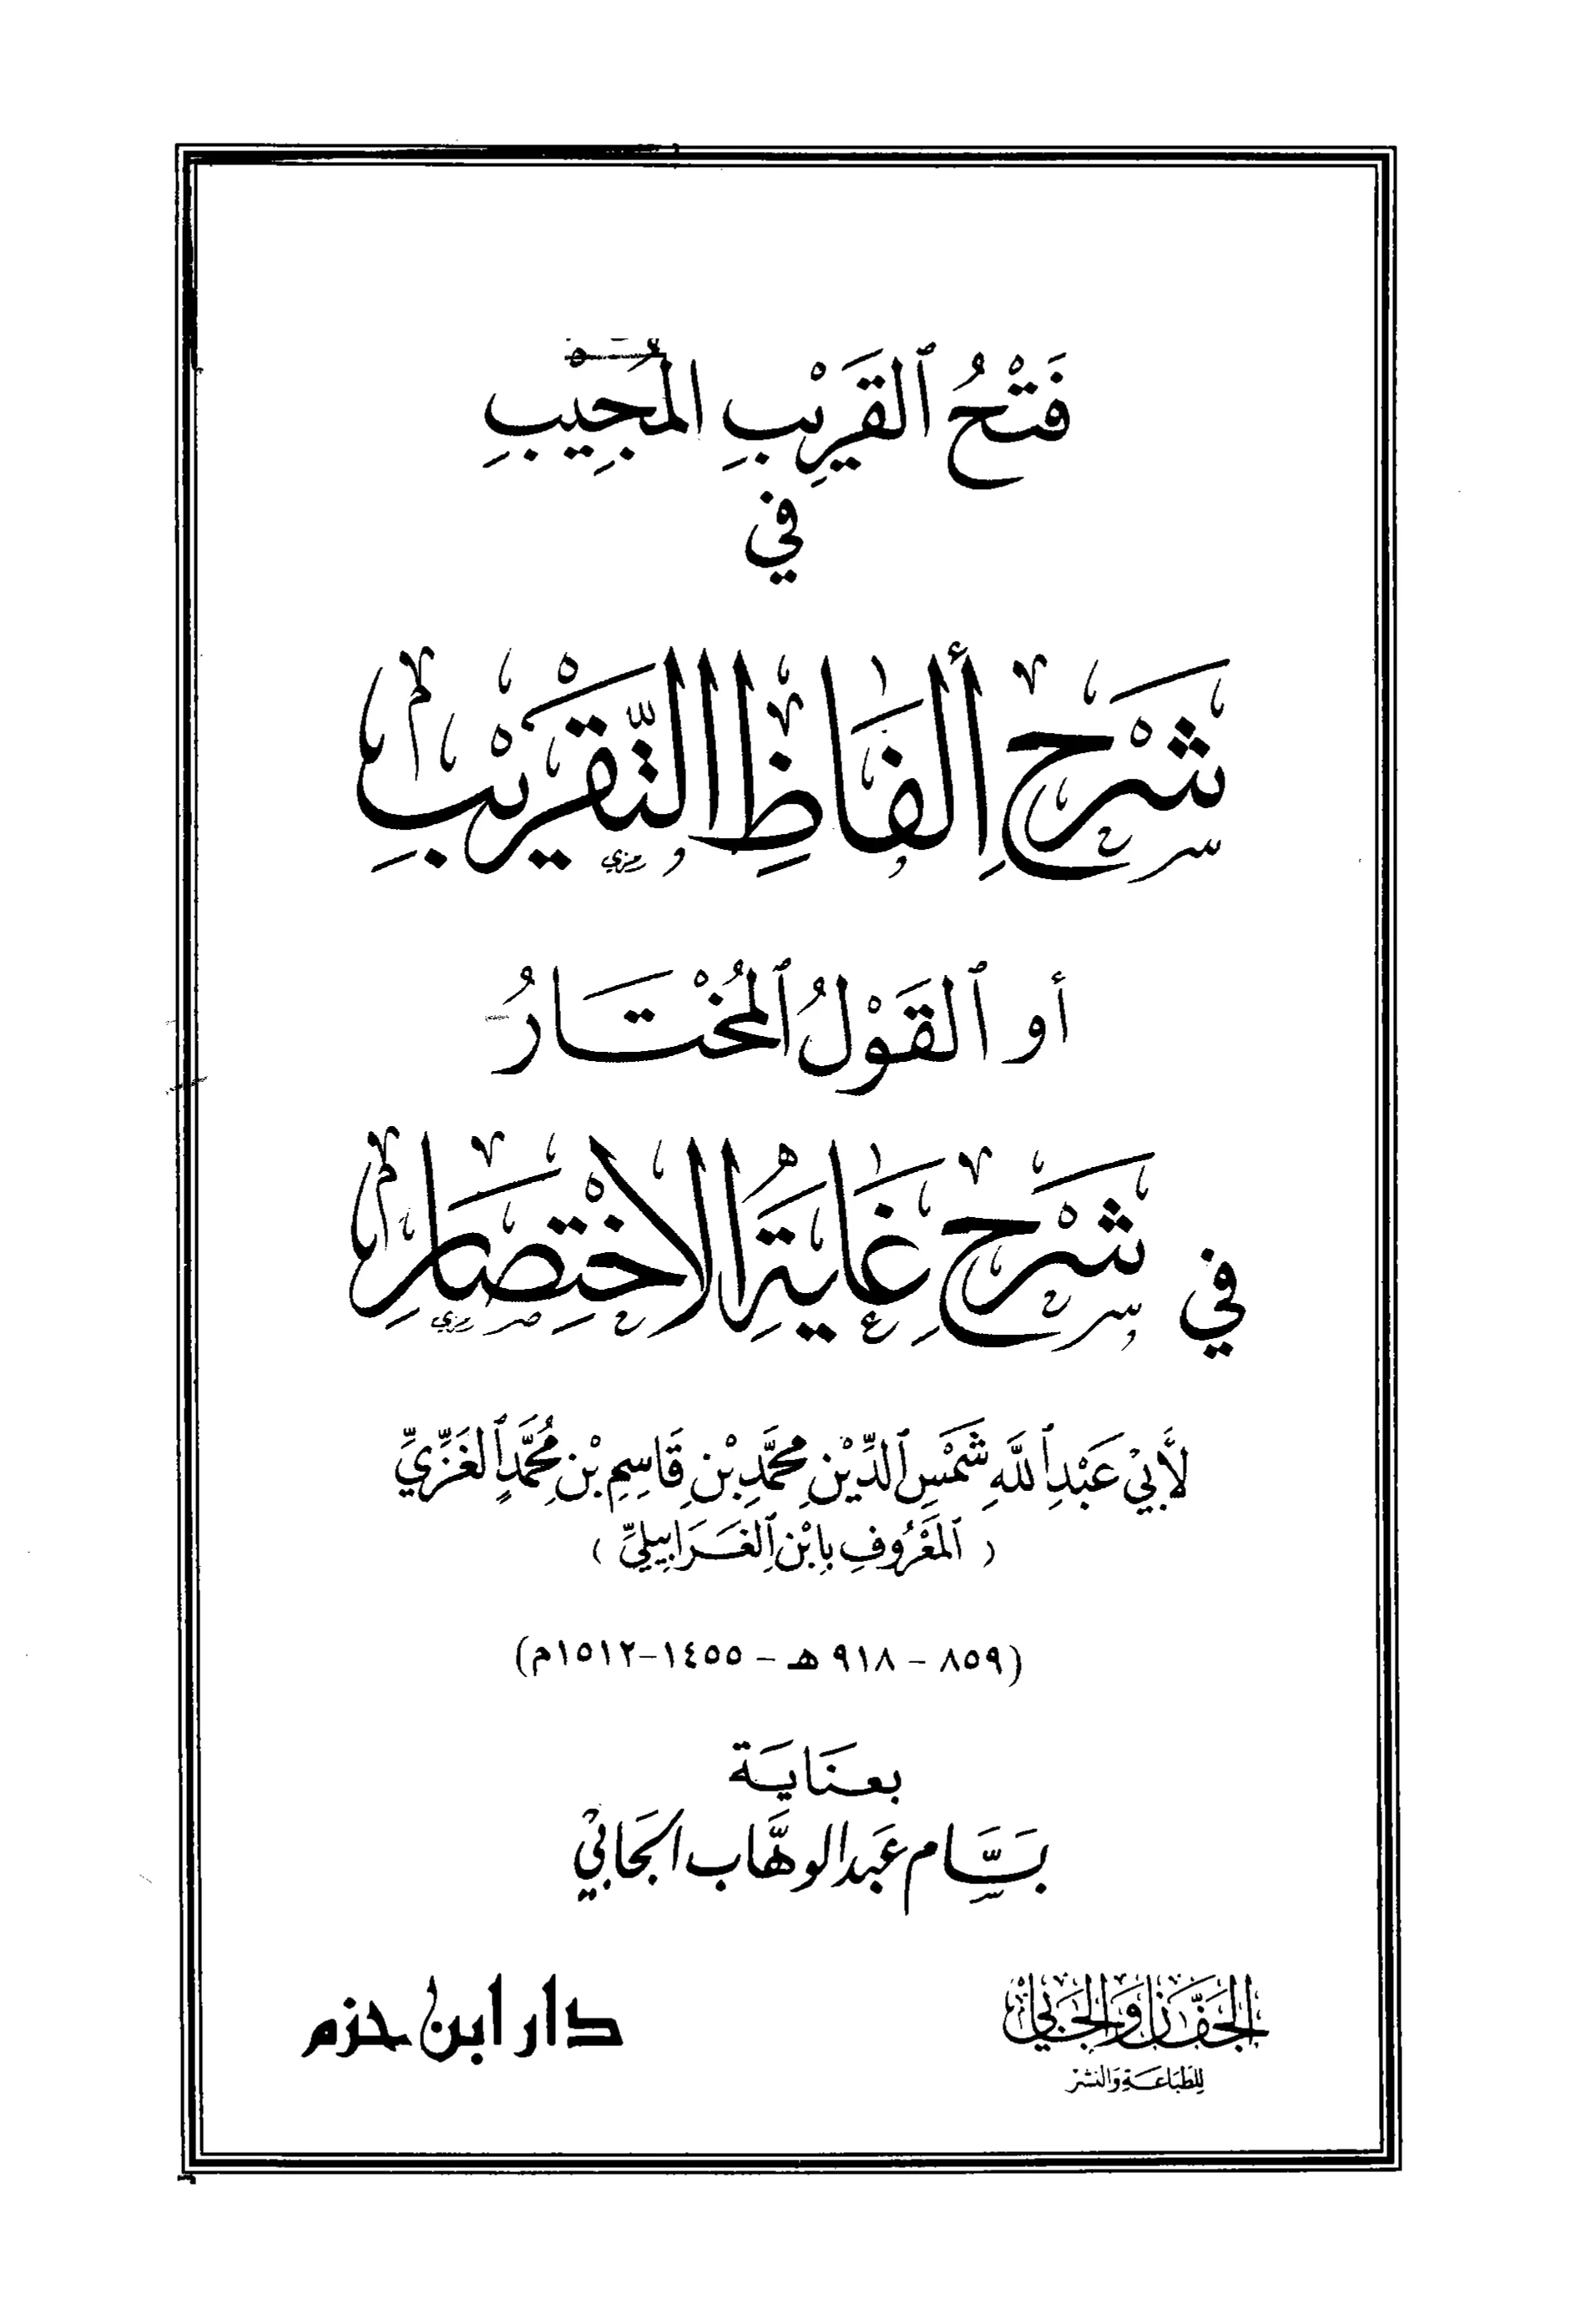 فَتْحُ ٱلقَرِيْبِ المُجِيْبِ
في
شَرْحِ أَلفَاظِ التَّقْرِيْبِ
أو ٱلقَوْلُ ٱلمُخْتَارُ
في شَرْحِ غَايَةِ الاخْتِصَارِ
لأَبِيْ عَبْدِ ٱللَّهِ شَمْسِ ٱلدِّيْنِ مُحَمَّدِ بْنِ قَاسِمِ بْنِ مُحَمَّدٍ ٱلغَزِّيِّ
( ٱلمَعْرُوفِ بِابْنِ ٱلغَرَابِيلِيِّ )
(٨٥٩ – ٩١٨ هـ – ١٤٥٥–١٥١٢م)
بعنَايَة
بَسَّام عَبد الوهَّاب الجَابيْ
الجَفَّان وَالجَابيْ
للطبَاعَة وَالنشر
دار ابن حزم